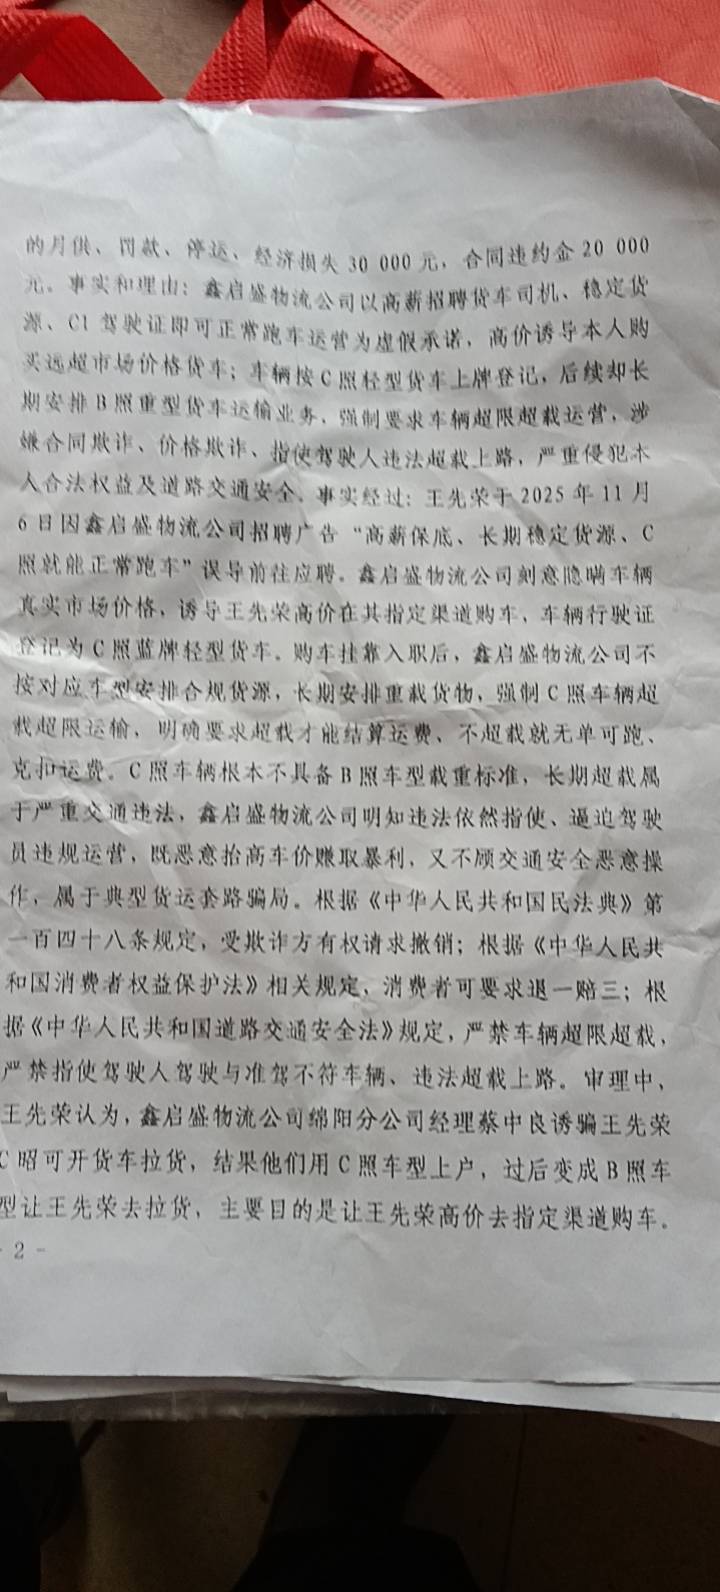 的月供、罚款、停运、经济损失 30 000 元，合同违约金 20 000
元。事实和理由：鑫启盛物流公司以高薪招聘货车司机、稳定货
源、C1 驾驶证即可正常跑车运营为虚假承诺，高价诱导本人购
买远超市场价格货车；车辆按 C 照轻型货车上牌登记，后续却长
期安排 B 照重型货车运输业务，强制要求车辆超限超载运营，涉
嫌合同欺诈、价格欺诈、指使驾驶人违法超载上路，严重侵犯本
人合法权益及道路交通安全。事实经过：王先荣于 2025 年 11 月
6 日因鑫启盛物流公司招聘广告“高薪保底、长期稳定货源、C
照就能正常跑车”误导前往应聘。鑫启盛物流公司刻意隐瞒车辆
真实市场价格，诱导王先荣高价在其指定渠道购车，车辆行驶证
登记为 C 照蓝牌轻型货车。购车挂靠入职后，鑫启盛物流公司不
按对应车型安排合规货源，长期安排重载货物，强制 C 照车辆超
载超限运输，明确要求超载才能结算运费、不超载就无单可跑、
克扣运费。C 照车辆根本不具备 B 照车型载重标准，长期超载属
于严重交通违法，鑫启盛物流公司明知违法依然指使、逼迫驾驶
员违规运营，既恶意抬高车价赚取暴利，又不顾交通安全恶意操
作，属于典型货运套路骗局。根据《中华人民共和国民法典》第
一百四十八条规定，受欺诈方有权请求撤销；根据《中华人民共
和国消费者权益保护法》相关规定，消费者可要求退一赔三；根
据《中华人民共和国道路交通安全法》规定，严禁车辆超限超载，
严禁指使驾驶人驾驶与准驾不符车辆、违法超载上路。审理中，
王先荣认为，鑫启盛物流公司绵阳分公司经理蔡中良诱骗王先荣
C 照可开货车拉货，结果他们用 C 照车型上户，过后变成 B 照车
型让王先荣去拉货，主要目的是让王先荣高价去指定渠道购车。
- 2 -